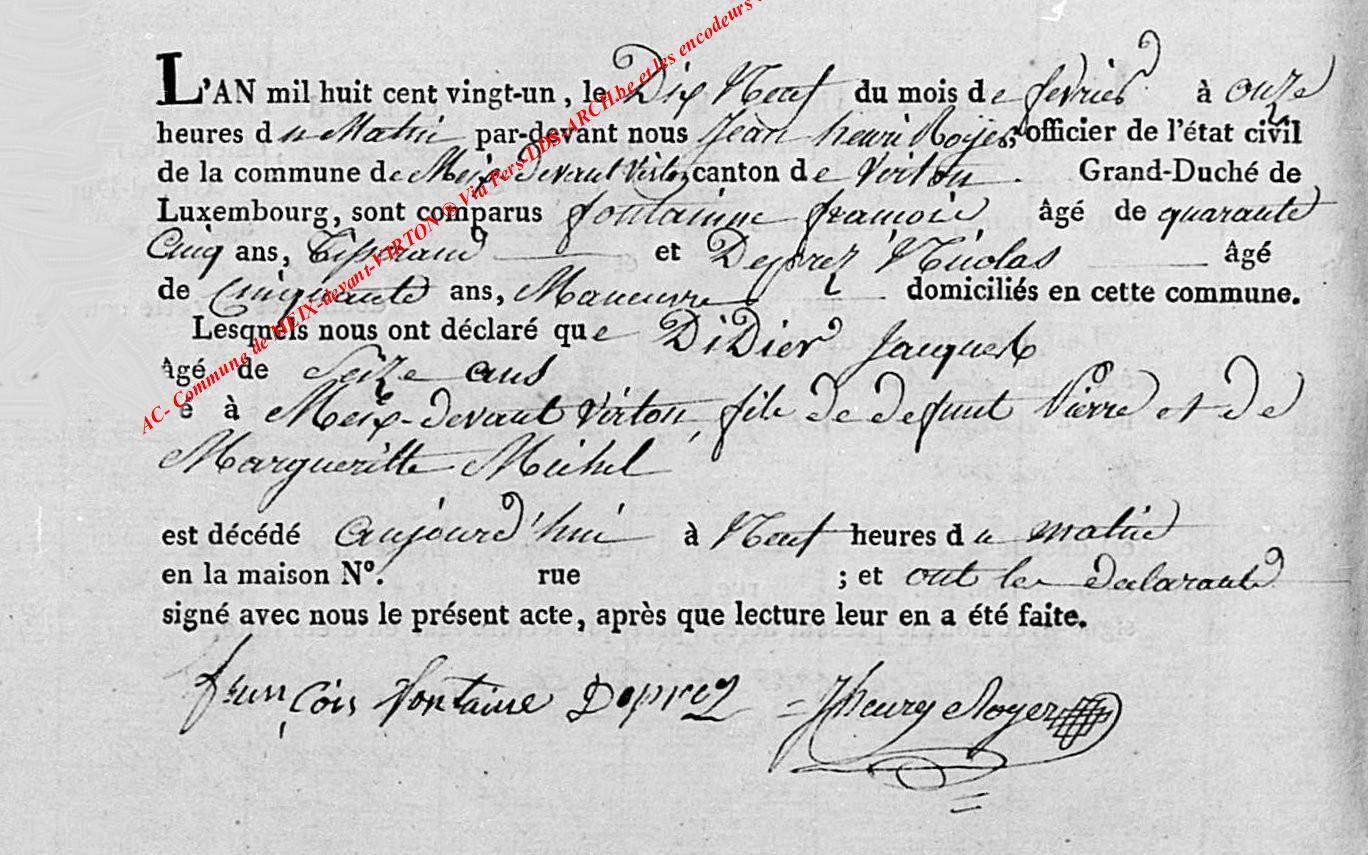 L'AN mil huit cent vingt-un, le Dix Neuf du mois de fevrier à onze
heures du Matin par-devant nous Jean henri Royer, officier de l'état civil
de la commune de Meix-devant Virton canton de Virton. Grand-Duché de
Luxembourg, sont comparus fontainne francois âgé de quarante
Cinq ans, Tisserand et Deprez Nicolas âgé
de Cinquante ans, Maneuvre domiciliés en cette commune.
Lesquels nous ont déclaré que DiDier Jacques
âgé de Seize ans
é à Meix-devant Virton, fils de defunt Pierre et de
Margueritte Michel
est décédé aujourd'hui à Neuf heures du matin
en la maison N°. rue ; et ont les declarants
signé avec nous le présent acte, après que lecture leur en a été faite.
françois fontaine Deprez Jhenry Royer
AC- Commune de MEIX-devant-VIRTON ® Via Pers-LDS-ARCH.be et les encodeurs